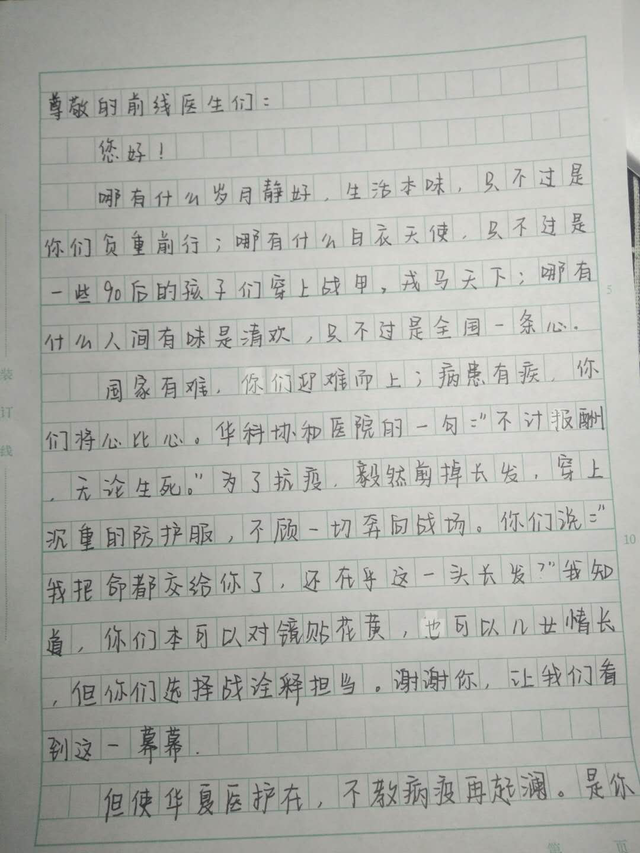 尊敬的前线医生们：
您好！
哪有什么岁月静好，生活本味，只不过是
你们负重前行；哪有什么白衣天使，只不过是
一些90后的孩子们穿上战甲，戎马天下；哪有
什么人间有味是清欢，只不过是全国一条心。
国家有难，你们迎难而上；病患有疾，你
们将心比心。华科协和医院的一句："不计报酬
，无论生死。"为了抗疫，毅然剪掉长发，穿上
沉重的防护服，不顾一切奔向战场。你们说："
我把命都交给你了，还在乎这一头长发？"我知
道，你们本可以对镜贴花黄，也可以儿女情长
，但你们选择战诠释担当。谢谢你，让我们看
到这一幕幕．
但使华夏医护在，不教病疫再起澜。是你
5
10
装
订
线
第 页